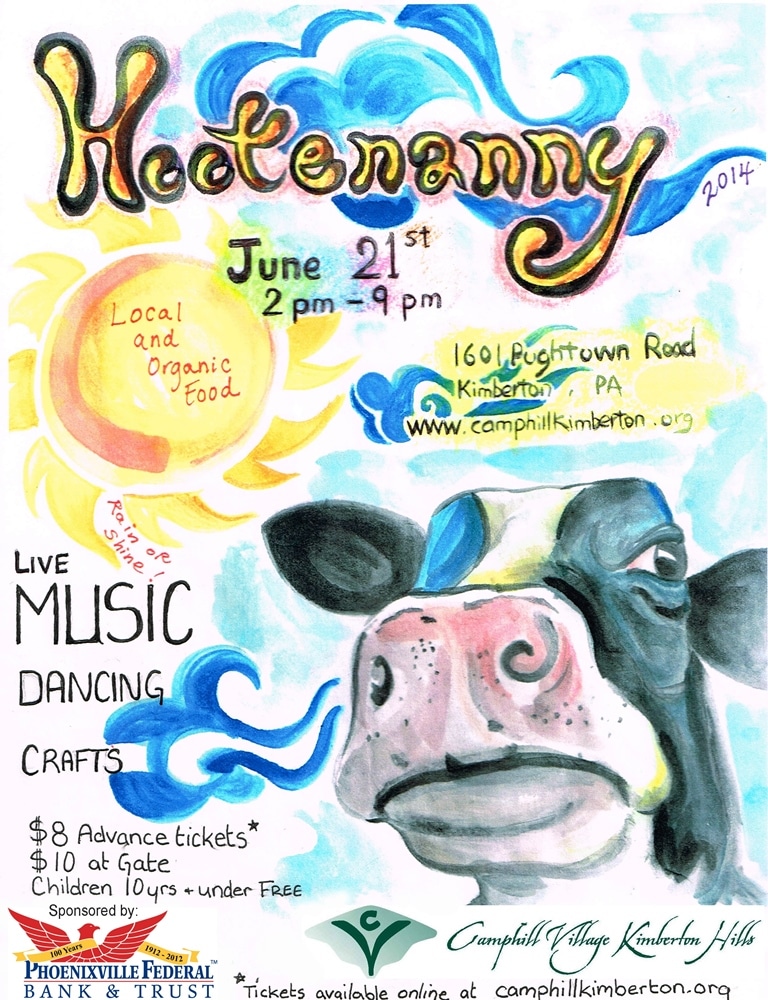 Hootenanny
2014
June 21st
2 pm – 9 pm
Local
and
Organic
Food
1601 Pughtown Road
Kimberton, PA
www.camphillkimberton.org
Rain or
Shine!
LIVE
MUSIC
DANCING
CRAFTS
$8 Advance tickets*
$10 at Gate
Children 10yrs + under FREE
Sponsored by:
100 Years 1912-2012
PHOENIXVILLE FEDERAL™
BANK & TRUST
C V
Camphill Village Kimberton Hills
*Tickets available online at camphillkimberton.org